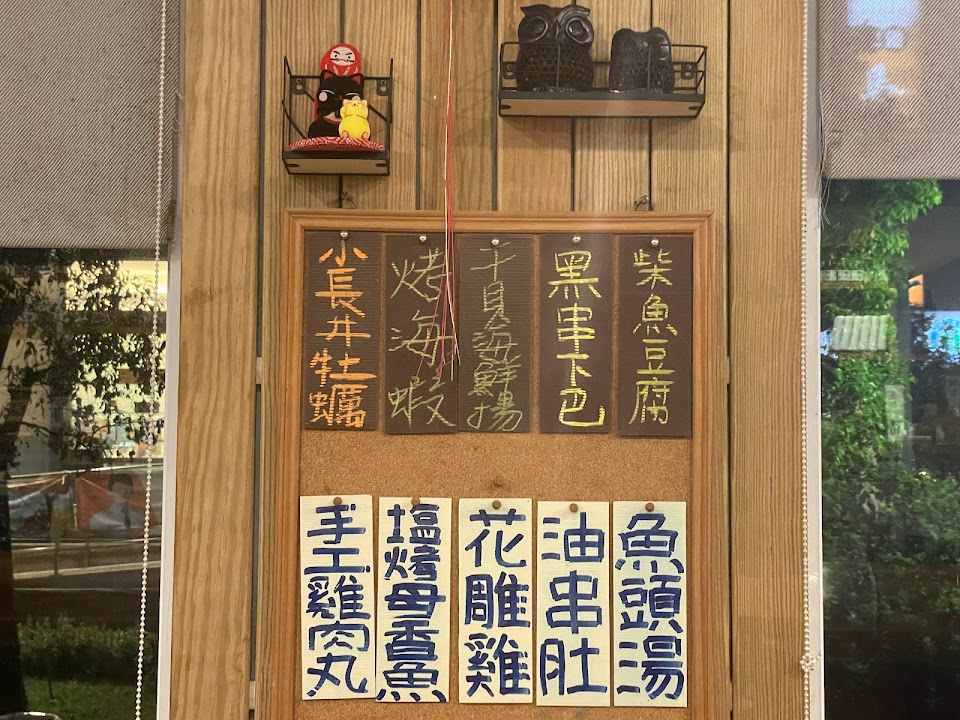 柴魚豆腐
黑串下巴
干貝海鮮揚
烤海蝦
小長井牡蠣
魚頭湯
油串肚
花雕雞
塩烤母香魚
手工雞肉丸